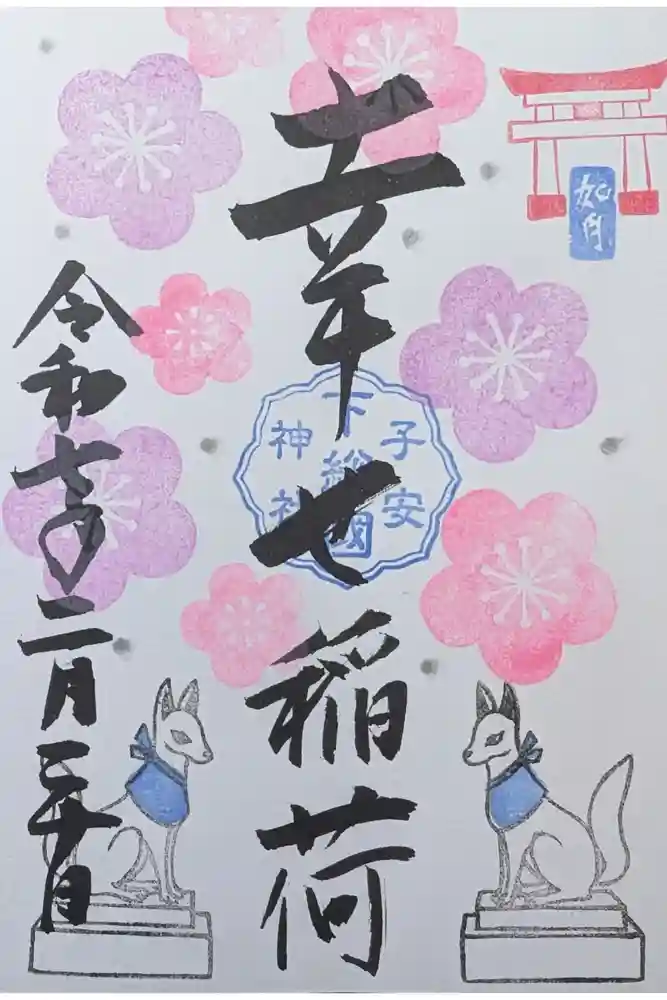 如月
幸せ稲荷
子安
下総國
神社
令和七年二月二十日